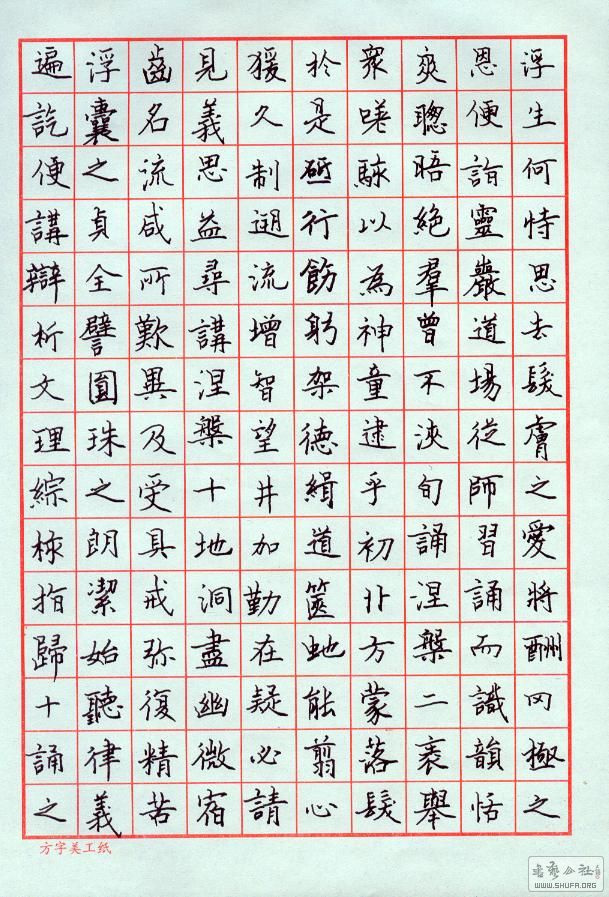 浮生何恃思去髮膚之愛將酬罔極之
恩便詣靈巖道場從師習誦而識韻恬
爽聰晤絕羣曾不浹旬誦涅槃二袠舉
衆嗟駭以為神童逮乎初丱方蒙落髮
於是砥行飭躬架德緝道篋虵能翦心
猨久制遡流增智望井加勤在疑必請
見義思益尋講涅槃十地洞盡幽微宿
齒名流咸所歎異及受具戒弥復精苦
浮囊之貞全譬圓珠之朗潔始聽律義
遍訖便講辯析文理綜核指歸十誦之
方字美工纸
WWW.SHUFA.ORG